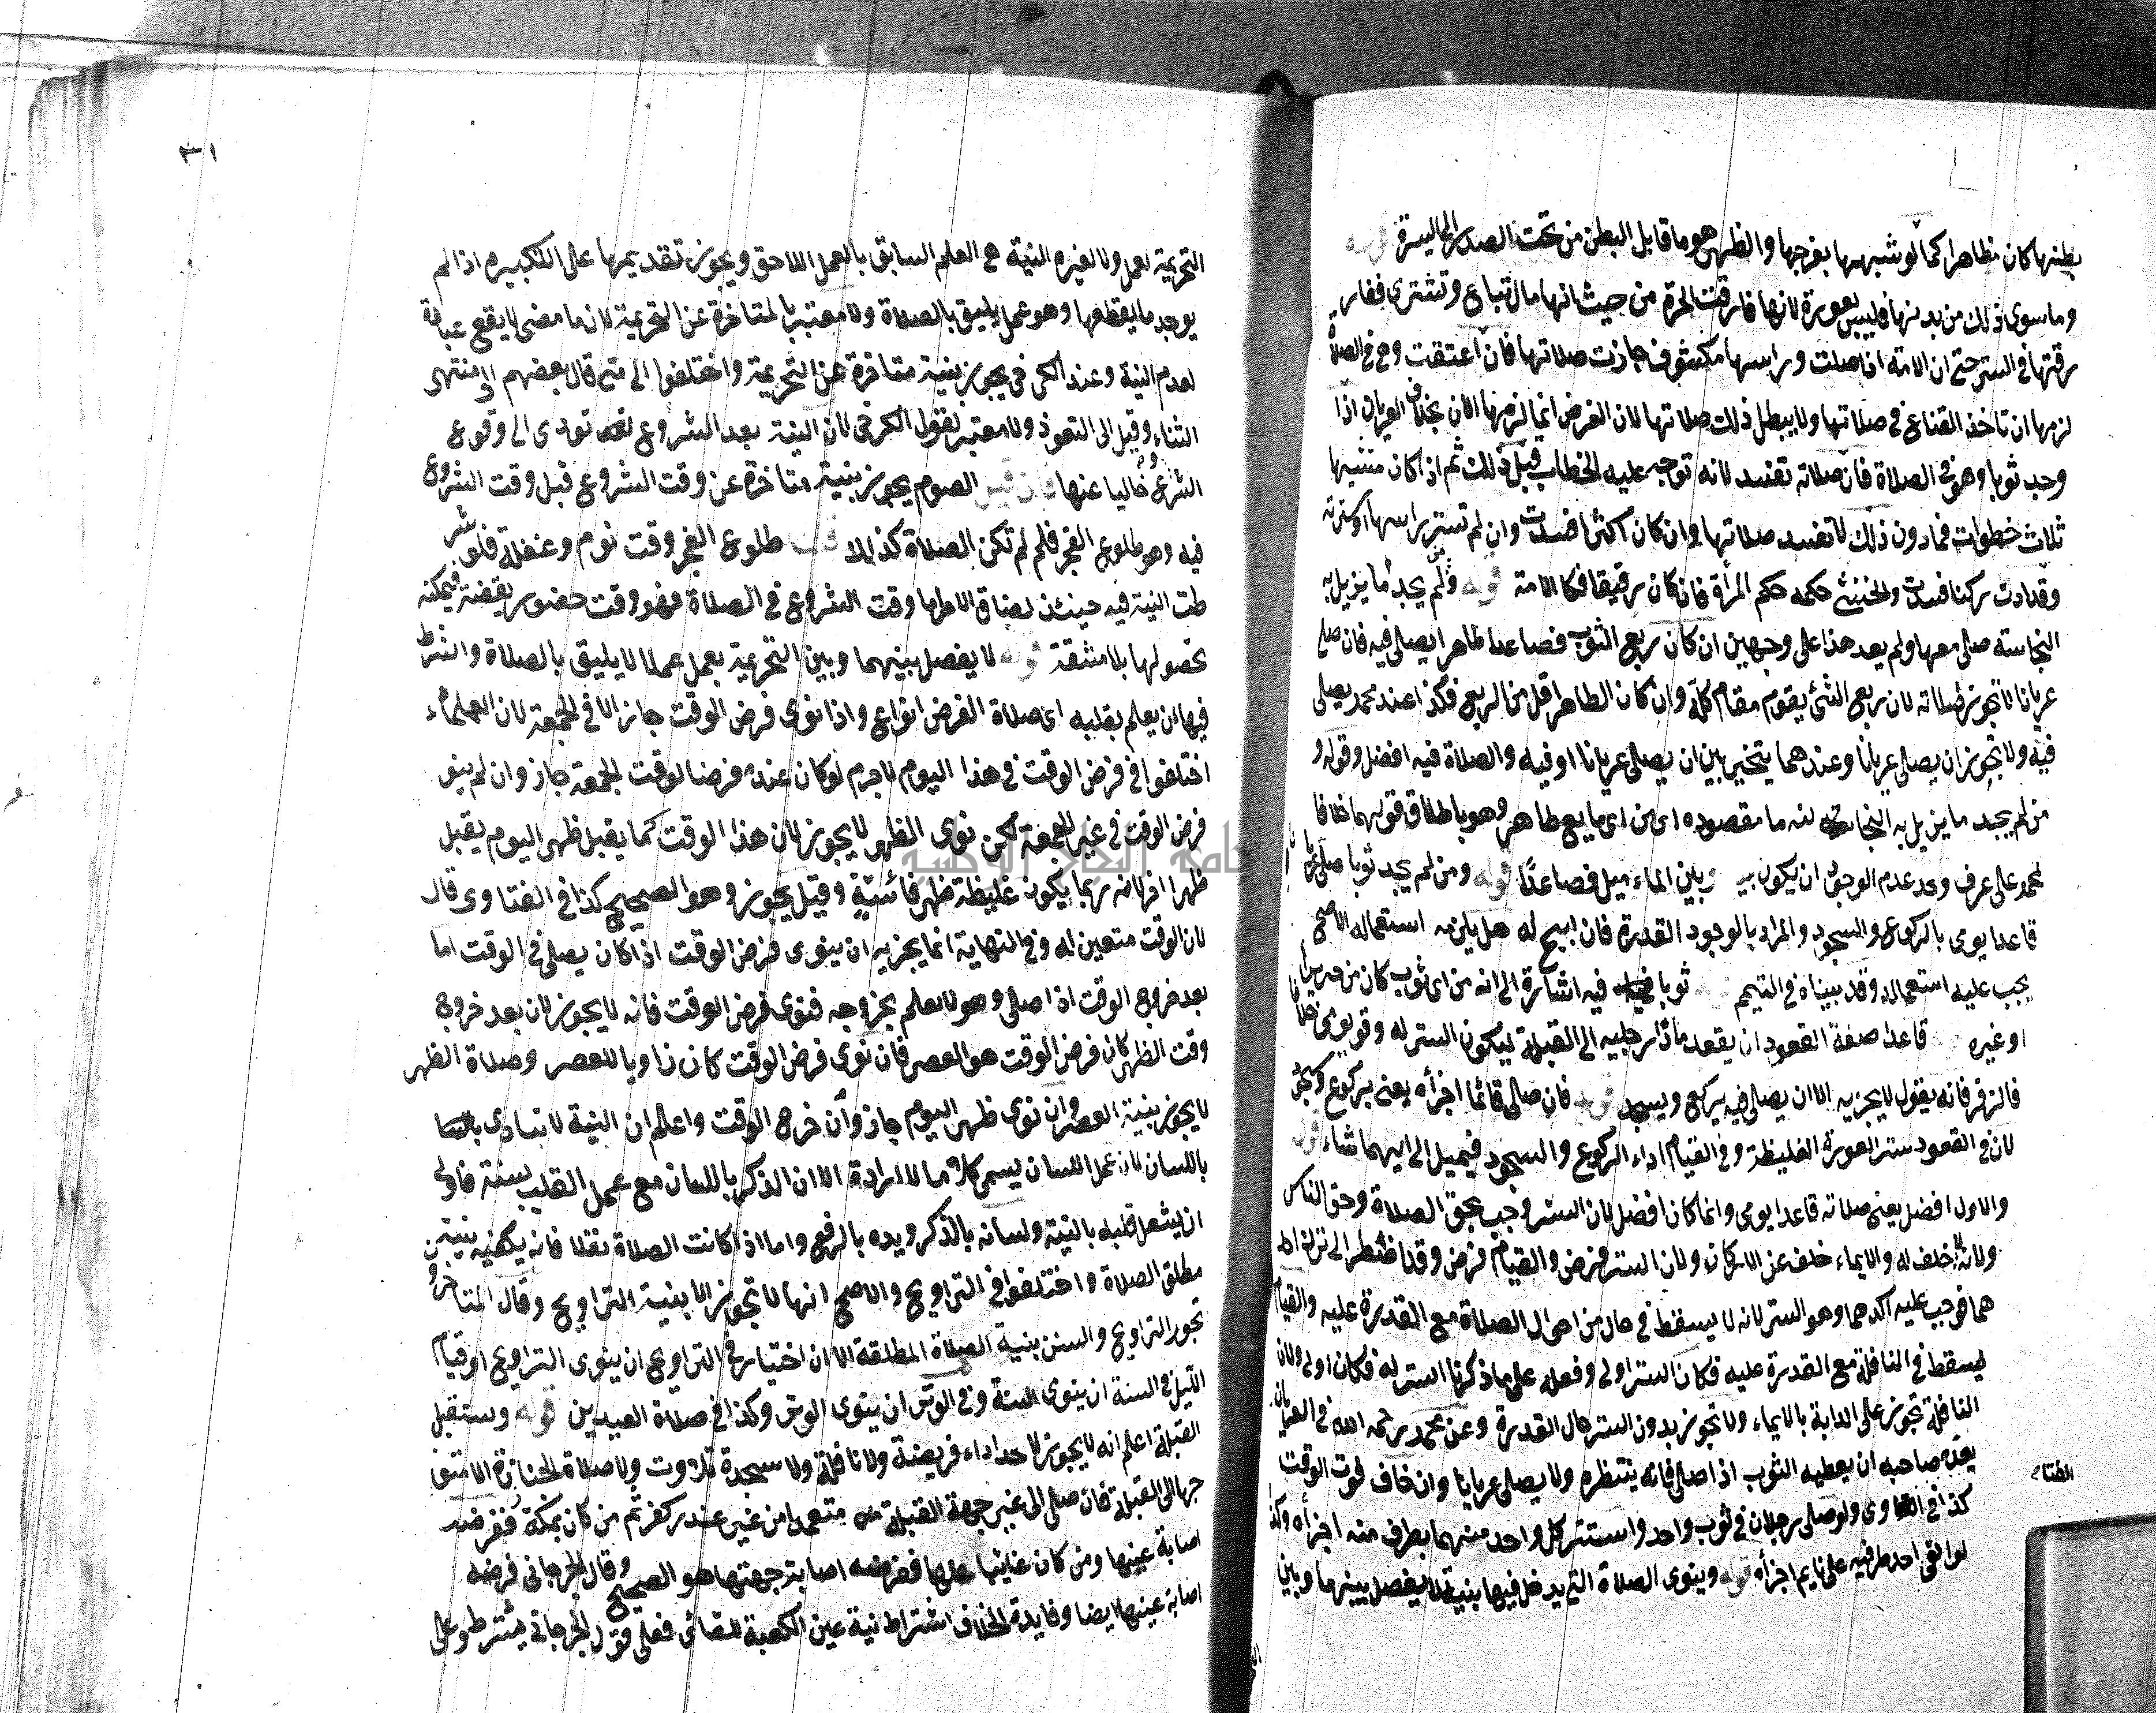 بطنها كان مظاهرا كما لو شبهها بفرجها والظهر هو ما قابل البطن من تحت الصدر الى السرة قوله
وما سوى ذلك من بدنها فليس بعورة لانها فارقت الحرة من حيث انها مال تباع وتشترى ففارق
رقتها في الستر حتى ان الامة اذا صلت وراسها مكشوف جازت صلاتها فان اعتقت وهي في الصلاة
لزمها ان تاخذ القناع في صلاتها ولا يبطل ذلك صلاتها لان الفرض انما لزمها الان بخلاف العريان اذا
وجد ثوبا وهو في الصلاة فان صلاته تفسد لانه توجه عليه الخطاب قبل ذلك ثم اذا كان مشيها
ثلاث خطوات فما دون ذلك لا تفسد صلاتها وان كان اكثر فسدت وان لم تستر راسها او سترته
وقد ادت ركنا فسدت والخنثى حكمه حكم المراة فان كان رقيقا فكالامة قوله ومن لم يجد ما يزيل به
النجاسة صلى معها ولم يعد هذا على وجهين ان كان ربع الثوب فصاعدا طاهرا يصلي فيه فان صلى
عريانا لا تجوز صلاته لان ربع الشئ يقوم مقام كله وان كان الطاهر اقل من الربع فكذا عند محمد يصلي
فيه ولا تجوز ان يصلي عريانا وعندهما يتخير بين ان يصلي عريانا او فيه والصلاة فيه افضل وقوله و
من لم يجد ما يزيل به النجاسة ما مقصوده اي من اي مايع طاهر وهو باطلاق قولهما خلافا
لمحمد على عرف وحد عدم الوجود ان يكون بينه وبين الماء ميل فصاعدا قوله ومن لم يجد ثوبا صلى عريانا
قاعدا يومي بالركوع والسجود والمراد بالوجود القدرة فان ابيح له هل يلزمه استعماله الاصح
يجب عليه استعماله وقد بيناه في التيمم ثوبا فيه اشارة الى انه من اي ثوب كان من حرير
او غيره قاعدا صفة القعود ان يقعد مادا رجليه الى القبلة ليكون استر له وقوله يومي خلافا
فالزفر فانه يقول لا يجزيه الا ان يصلي يركع ويسجد قوله فان صلى قائما اجزأه يعني بركوع وسجود
لان في القعود ستر العورة الغليظة وفي القيام اداء الركوع والسجود فيميل الى ايهما شاء قوله
والاول افضل يعني صلاته قاعدا يومي وانما كان افضل لان الستر وجب بحق الصلاة وحق الناس
ولانه لا خلف له والايماء خلف عن الاركان ولان الستر فرض والقيام فرض وقد اضطر الى ترك احد
هما فوجب عليه اكدهما وهو الستر لانه لا يسقط في حال من احوال الصلاة مع القدرة عليه والقيام
يسقط في النافلة مع القدرة عليه فكان الستر اولى وفعله على ما ذكرنا استر له فكان اولى ولان
النافلة تجوز على الدابة بالايماء ولا تجوز بدون الستر حال القدرة وعن محمد رحمه الله في العريان
يعده صاحبه ان يعطيه الثوب اذا صلى فانه ينتظره ولا يصلي عريانا وان خاف فوت الوقت
كذا في الفتاوى ولو صلى رجلان في ثوب واحد واستتر كل واحد منهما بطرف منه اجزأه وكذا
لو القى احد طرفيه على نايم اجزأه قوله وينوي الصلاة التي يدخل فيها بنية لا يفصل بينها وبين
الفتاوى
٣١
التحريمة بعمل ولا لغيره النية هي العلم السابق بالعمل اللاحق ويجوز تقديمها على التكبيرة اذا لم
يوجد ما يقطعها وهو عمل يليق بالصلاة ولا معتبر بالمتاخرة عن التحريمة لان ما مضى لا يقع عبادة
لعدم النية وعند الكرخي يجوز بنية متاخرة عن التحريمة واختلفوا الى متى قال بعضهم الى منتهى
الثناء وقيل الى التعوذ ولا معتبر لقول الكرخي لان النية بعد الشروع تؤدى الى وقوع
الشروع خاليا عنها فان قيل الصوم يجوز بنية متاخرة عن وقت الشروع قبل وقت الشروع
فيه وهو طلوع الفجر فلم لم تكن الصلاة كذلك قلت طلوع الفجر وقت نوم وغفلة فلو شر
طت النية فيه حينئذ لضاق الامر اما وقت الشروع في الصلاة فهو وقت حضور يقظة فيمكنه
تحصيلها بلا مشقة قوله لا يفصل بينهما وبين التحريمة بعمل عملا لا يليق بالصلاة والشرط
فيها ان يعلم بقلبه اي صلاة الفرض انواع واذا نوى فرض الوقت جاز الا في الجمعة لان العلماء
اختلفوا في فرض الوقت في هذا اليوم لاجرم لو كان عنده فرض الوقت الجمعة جاز وان لم ينو
فرض الوقت في غير الجمعة لكن نوى الظهر لا يجوز لان هذا الوقت كما يقبل ظهر اليوم يقبل
ظهرا اخر لانه ربما يكون عليه ظهر فائتة وقيل يجوز وهو الصحيح كذا في الفتاوى قال
لان الوقت متعين له وفي النهاية انما يجزيه ان ينوي فرض الوقت اذا كان يصلي في الوقت اما
بعد خروج الوقت اذا صلى وهو لا يعلم بخروجه فنوى فرض الوقت فانه لا يجوز لان بعد خروج
وقت الظهر كان فرض الوقت هو العصر فان نوى فرض الوقت كان ناويا للعصر وصلاة الظهر
لا يجوز بنية العصر وان نوى ظهر اليوم جاز وان خرج الوقت واعلم ان النية لا تتادى
باللسان لان عمل اللسان يسمى كلاما لا ارادة الا ان الذكر باللسان مع عمل القلب سنة فاولى
ان يشغل قلبه بالنية ولسانه بالذكر ويده بالرفع واما اذا كانت الصلاة نفلا فانه يكفيه بنية
مطلق الصلاة واختلفوا في التراويح والاصح انها لا تجوز الا بنية التراويح وقال المتاخرون
تجوز التراويح والسنن بنية الصلاة المطلقة الا ان اختيار في التراويح ان ينوي التراويح او قيام
الليل في السنة ان ينوي السنة وفي الوتر ان ينوي الوتر وكذا في صلاة العيدين قوله ويستقبل
القبلة اعلم انه لا يجوز لاحد اداء فريضة ولا نافلة ولا سجدة تلاوت ولا صلاة الجنازة الا متو
جها الى القبلة فان صلى الى غير جهة القبلة متعمدا من غير عذر كفر ثم من كان بمكة ففرضه
اصابة عينها ومن كان غائبا عنها ففرضه اصابة جهتها هو الصحيح وقال الجرجاني فرضه
اصابة عينها ايضا وفايدة الخلاف اشتراط نية عين الكعبة للنائي فعلى قول الجرجاني يشترط وعلى